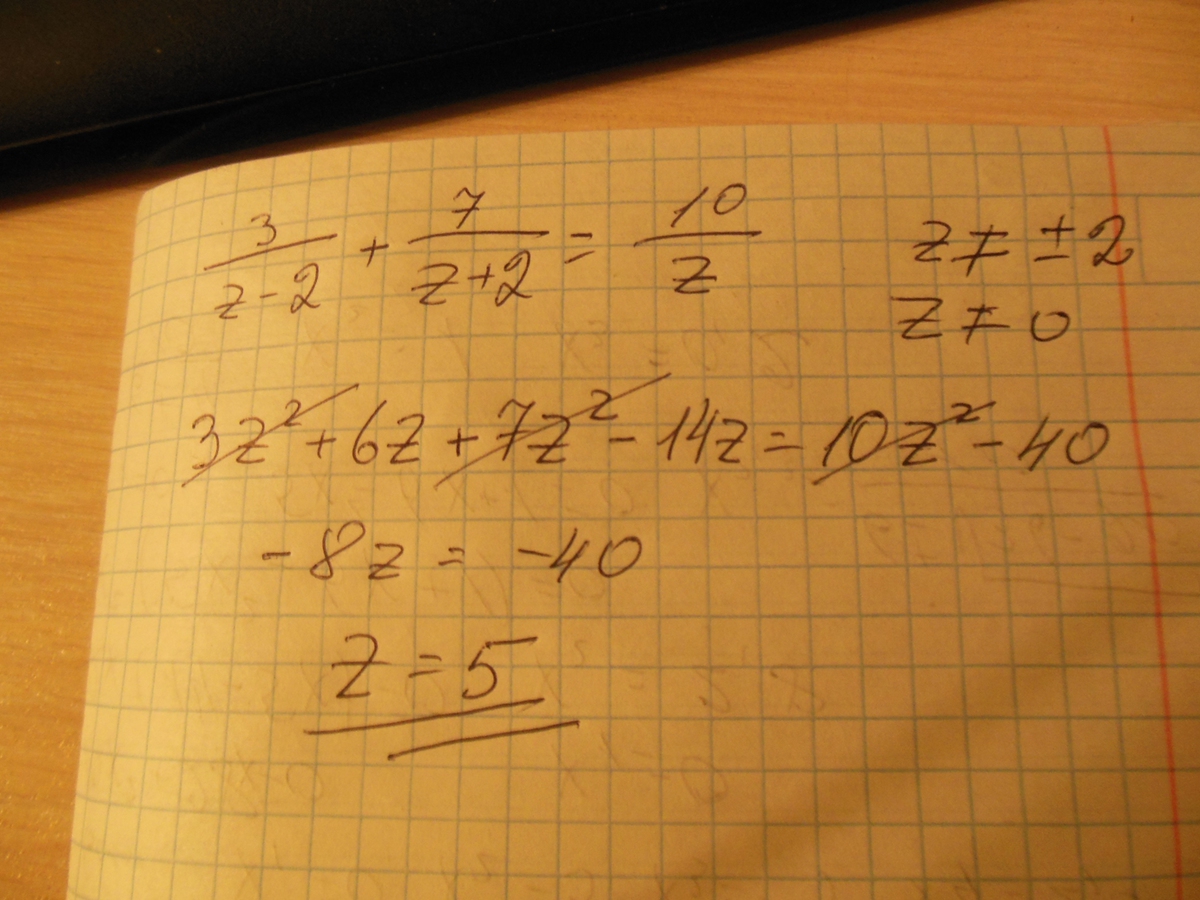 3/(z-2) + 7/(z+2) = 10/z
z ≠ ±2
z ≠ 0
3z² + 6z + 7z² - 14z = 10z² - 40
-8z = -40
z = 5